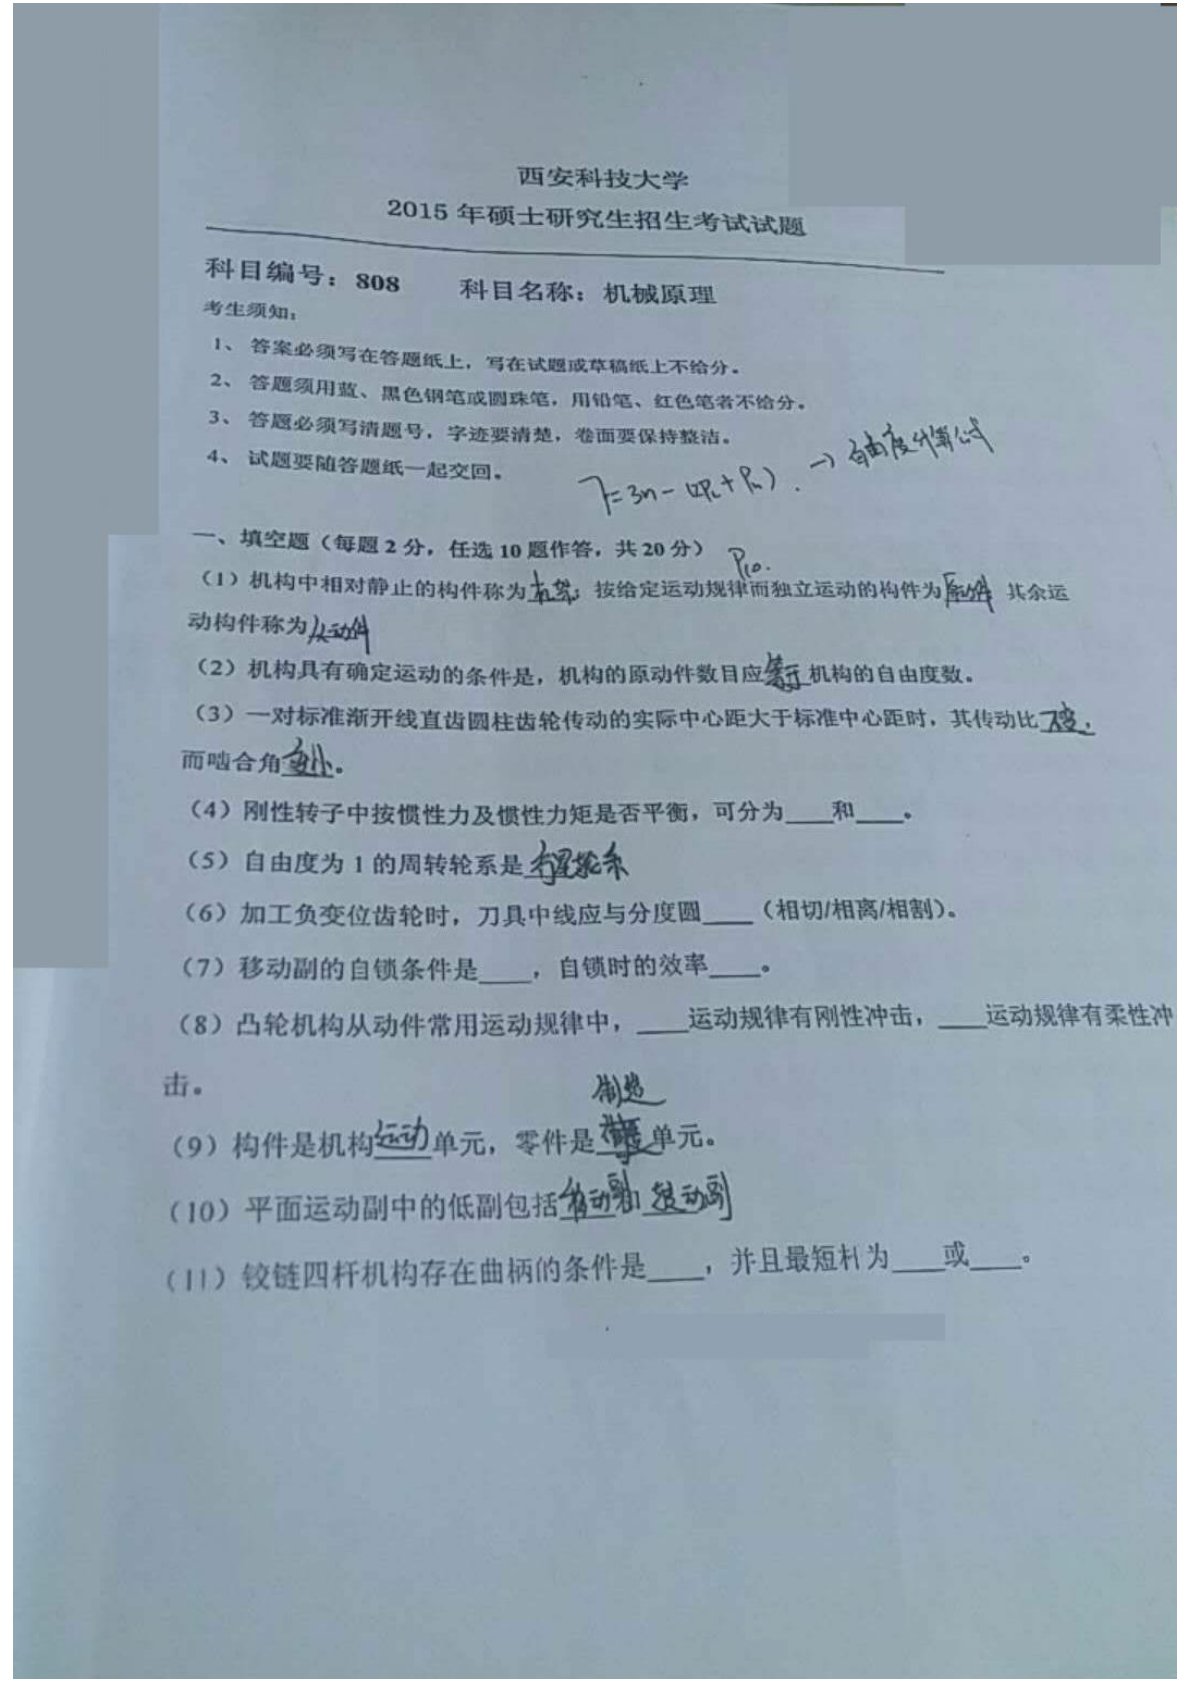 西安科技大学
2015 年硕士研究生招生考试试题
科目编号：808 科目名称：机械原理
考生须知：
1、 答案必须写在答题纸上，写在试题或草稿纸上不给分。
2、 答题须用蓝、黑色钢笔或圆珠笔，用铅笔、红色笔者不给分。
3、 答题必须写清题号，字迹要清楚，卷面要保持整洁。
4、 试题要随答题纸一起交回。
F=3n-(2PL+Ph). → 自由度计算公式
一、填空题（每题 2 分，任选 10 题作答，共 20 分）
P10.
（1）机构中相对静止的构件称为机架；按给定运动规律而独立运动的构件为原动件 其余运
动构件称为从动件
（2）机构具有确定运动的条件是，机构的原动件数目应等于机构的自由度数。
（3）一对标准渐开线直齿圆柱齿轮传动的实际中心距大于标准中心距时，其传动比不变.
而啮合角变小。
（4）刚性转子中按惯性力及惯性力矩是否平衡，可分为____和____。
（5）自由度为 1 的周转轮系是行星轮系
（6）加工负变位齿轮时，刀具中线应与分度圆____（相切/相离/相割）。
（7）移动副的自锁条件是____，自锁时的效率____。
（8）凸轮机构从动件常用运动规律中，____运动规律有刚性冲击，____运动规律有柔性冲
击。
制造
（9）构件是机构运动单元，零件是单元。
（10）平面运动副中的低副包括移动副 转动副
（11）铰链四杆机构存在曲柄的条件是____，并且最短杆为____或____。